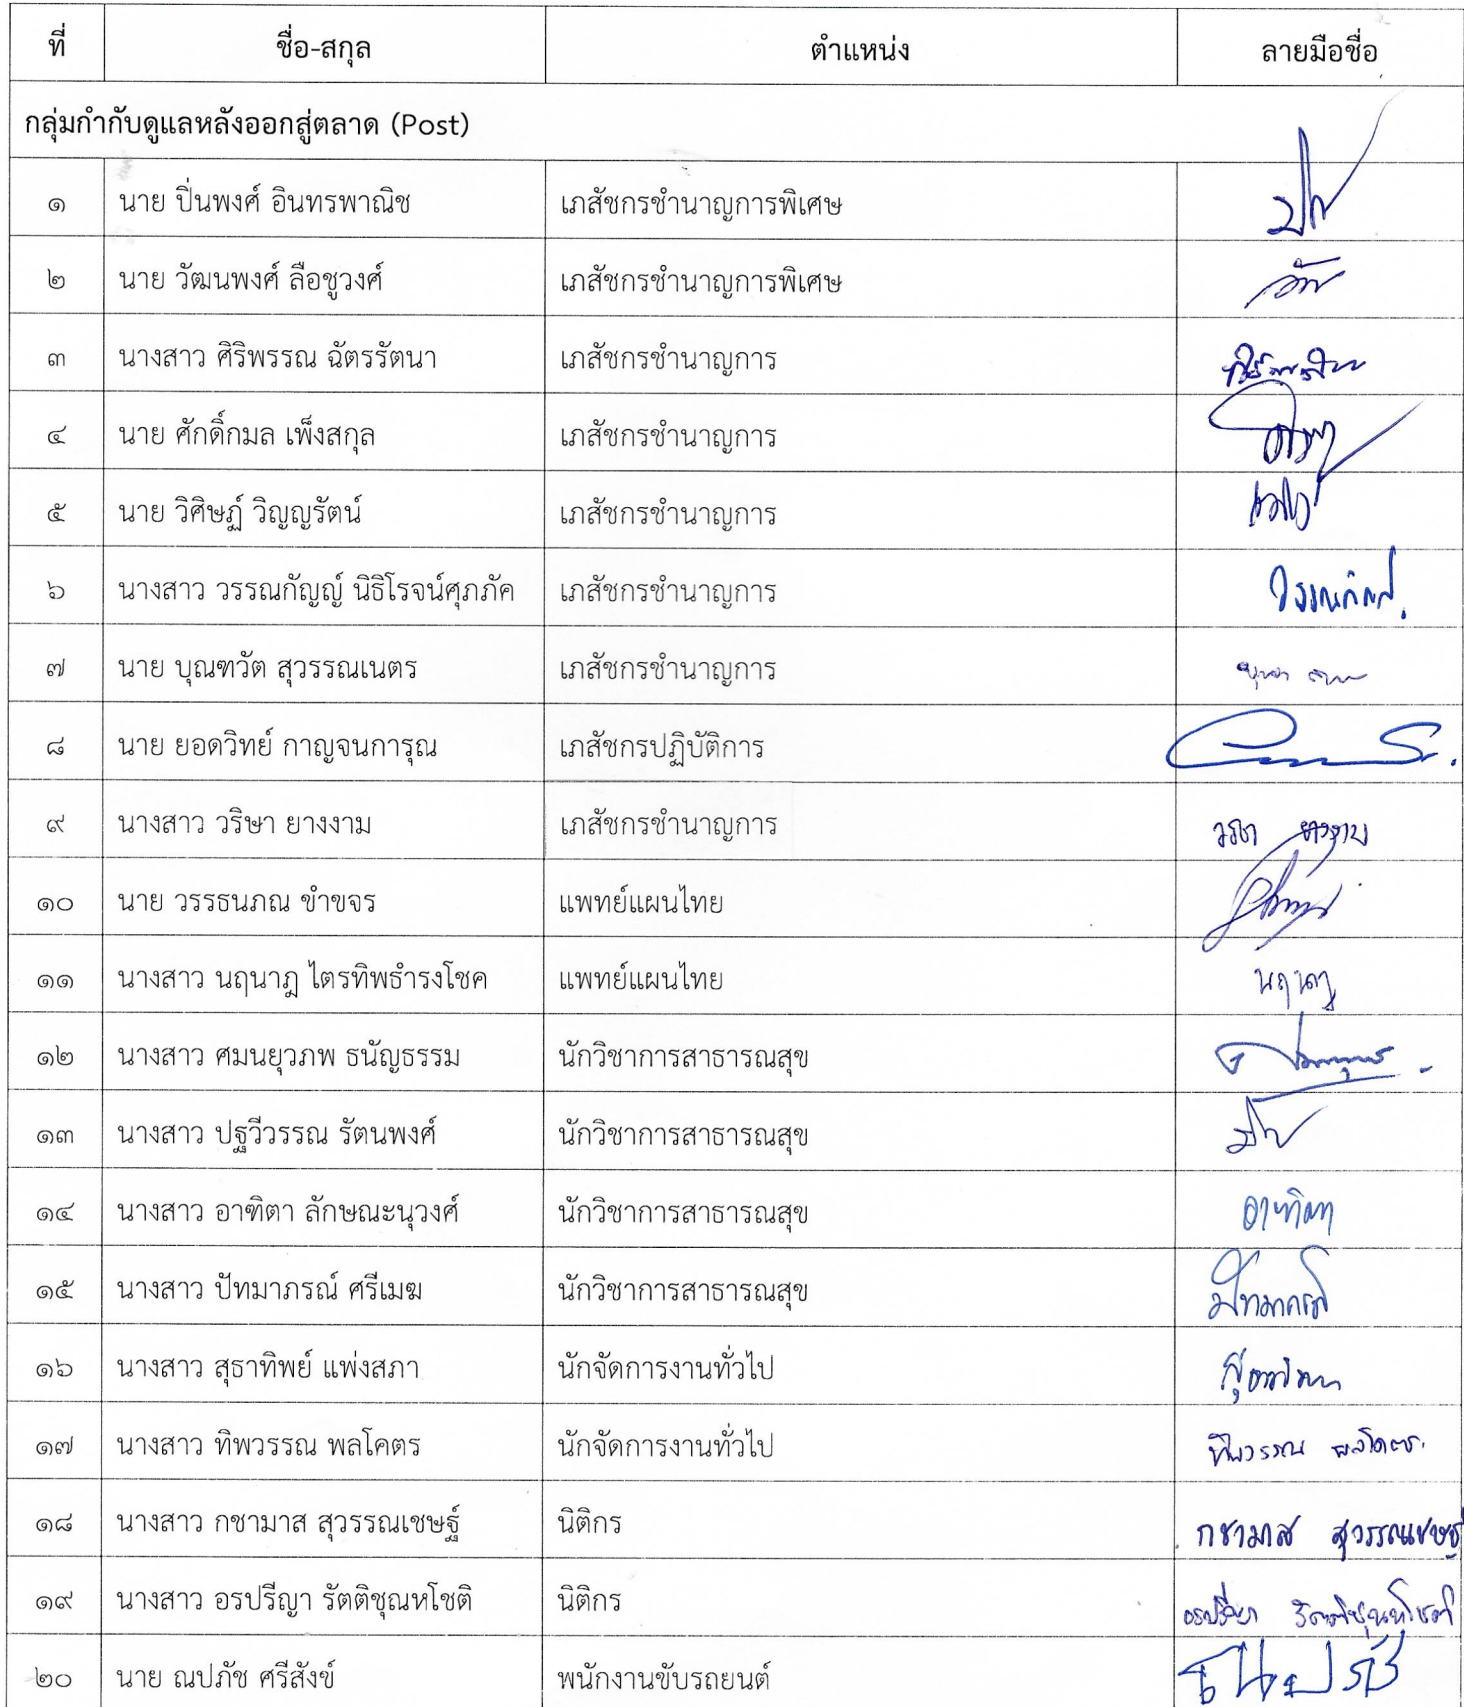 ที่ ชื่อ-สกุล ตำแหน่ง ลายมือชื่อ
กลุ่มกำกับดูแลหลังออกสู่ตลาด (Post)
๑ นาย ปิ่นพงศ์ อินทรพาณิช เภสัชกรชำนาญการพิเศษ
๒ นาย วัฒนพงศ์ ลือชูวงศ์ เภสัชกรชำนาญการพิเศษ
๓ นางสาว ศิริพรรณ ฉัตรรัตนา เภสัชกรชำนาญการ
๔ นาย ศักดิ์กมล เพ็งสกุล เภสัชกรชำนาญการ
๕ นาย วิศิษฏ์ วิญญรัตน์ เภสัชกรชำนาญการ
๖ นางสาว วรรณกัญญ์ นิธิโรจน์ศุภภัค เภสัชกรชำนาญการ
๗ นาย บุณฑวัต สุวรรณเนตร เภสัชกรชำนาญการ
๘ นาย ยอดวิทย์ กาญจนการุณ เภสัชกรปฏิบัติการ
๙ นางสาว วริษา ยางงาม เภสัชกรชำนาญการ วริษา ยางงาม
๑๐ นาย วรรธนภณ ขำขจร แพทย์แผนไทย
๑๑ นางสาว นฤนาฎ ไตรทิพธำรงโชค แพทย์แผนไทย นฤนาฎ
๑๒ นางสาว ศมนยุวภพ ธนัญธรรม นักวิชาการสาธารณสุข
๑๓ นางสาว ปฐวีวรรณ รัตนพงศ์ นักวิชาการสาธารณสุข
๑๔ นางสาว อาฑิตา ลักษณะนุวงศ์ นักวิชาการสาธารณสุข อาฑิตา
๑๕ นางสาว ปัทมาภรณ์ ศรีเมฆ นักวิชาการสาธารณสุข ปัทมาภรณ์
๑๖ นางสาว สุธาทิพย์ แพ่งสภา นักจัดการงานทั่วไป
๑๗ นางสาว ทิพวรรณ พลโคตร นักจัดการงานทั่วไป ทิพวรรณ พลโคตร
๑๘ นางสาว กชามาส สุวรรณเชษฐ์ นิติกร กชามาส สุวรรณเชษฐ์
๑๙ นางสาว อรปรีญา รัตติชุณหโชติ นิติกร อรปรีญา รัตติชุณหโชติ
๒๐ นาย ณปภัช ศรีสังข์ พนักงานขับรถยนต์